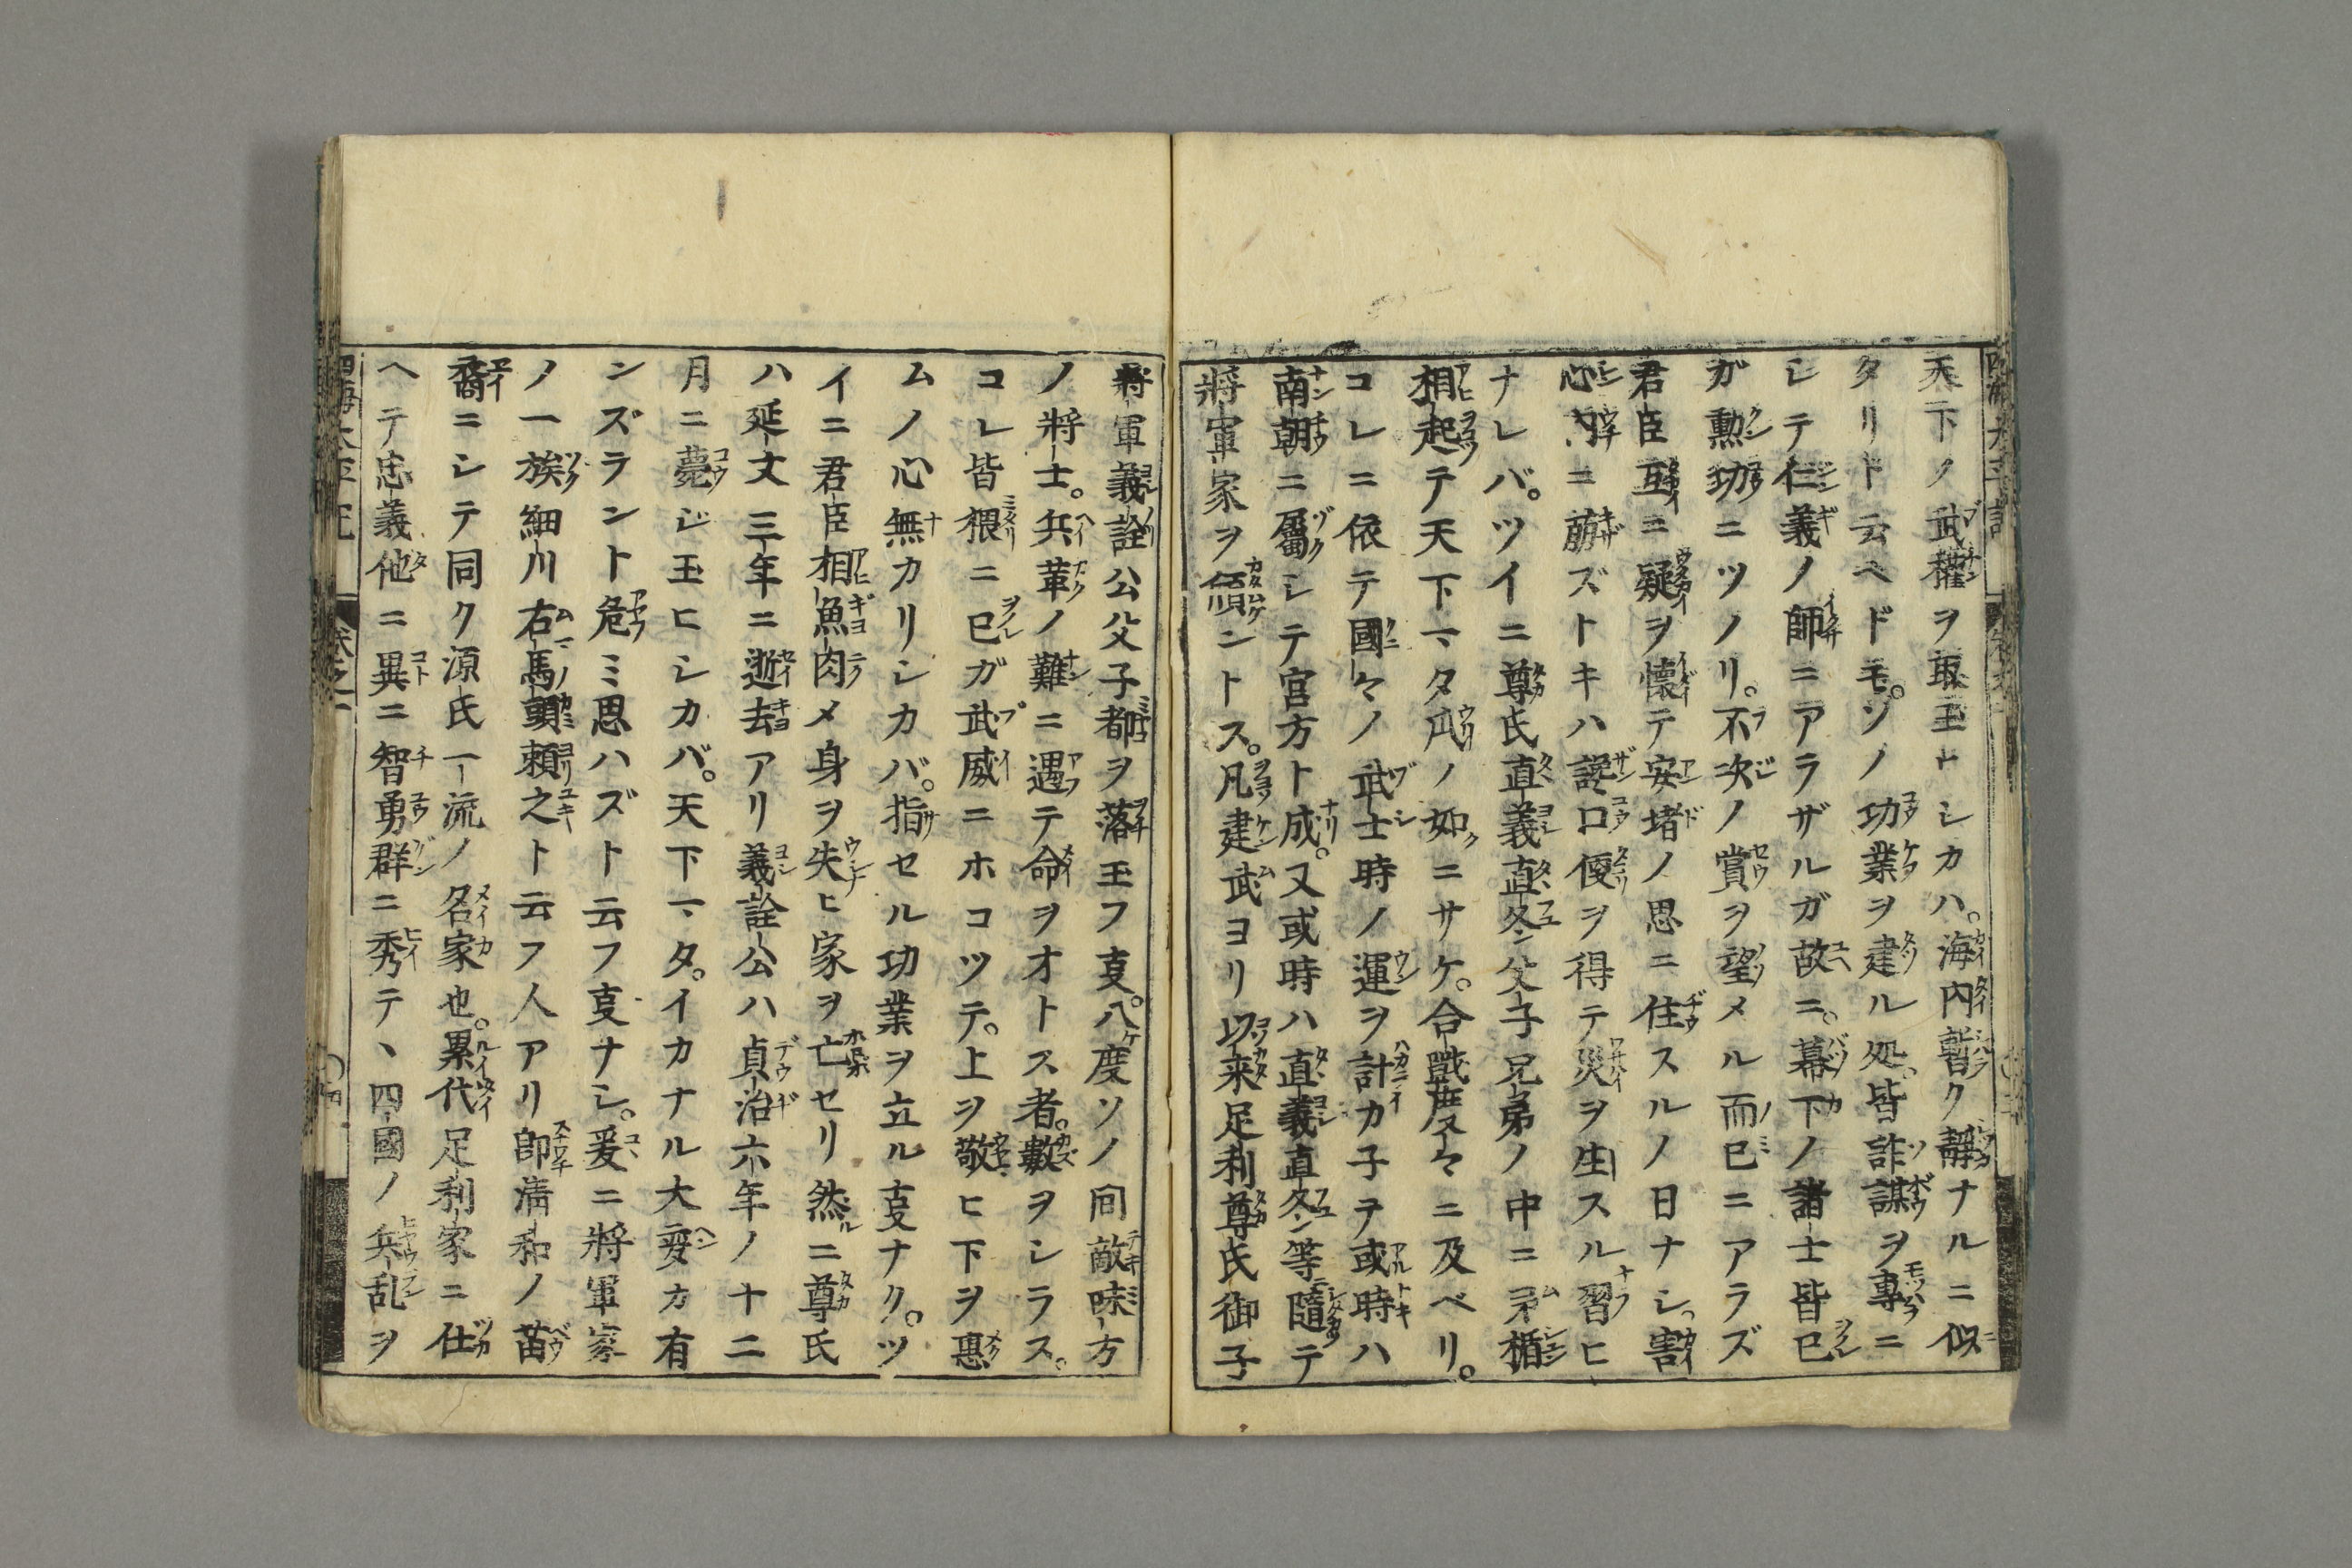 天下ノ武權ヲ取玉ヒシカハ。海内暫ク靜ナルニ似
タリト云ヘドモ。ソノ功業ヲ建ル処。皆詐謀ヲ專ニ
シテ仁義ノ師ニアラザルガ故ニ。幕下ノ諸士皆已
ガ勲功ニツノリ。不次ノ賞ヲ望メル而已ニアラズ
君臣互ニ疑ヲ懐テ安堵ノ思ニ住スルノ日ナシ。害
心内ニ萠ズトキハ讒口便ヲ得テ災ヲ生スル習ヒ
ナレバ。ツイニ尊氏直義直冬父子兄弟ノ中ニ矛楯
相起テ天下一タ瓜ノ如ニサケ。合戰度々ニ及ベリ。
コレニ依テ國々ノ武士時ノ運ヲ計カ子テ或時ハ
南朝ニ屬シテ宮方ト成。又或時ハ直義直冬等ニ隨テ
將軍家ヲ傾ントス。凡建武ヨリ以来足利尊氏御子
將軍義詮公父子都ヲ落玉フ叓。八ケ度ソノ間敵味方
ノ將士。兵革ノ難ニ遇テ命ヲオトス者。數ヲシラス。
コレ皆猥ニ已ガ武威ニホコツテ。上ヲ敬ヒ下ヲ惠
ムノ心無カリシカバ。指セル功業ヲ立ル叓ナク。ツ
イニ君臣相魚肉メ身ヲ失ヒ家ヲ亡セリ然ルニ尊氏
ハ延文三年ニ逝去アリ義詮公ハ貞治六年ノ十二
月ニ薨ジ玉ヒシカバ。天下一タ。イカナル大変カ有
ンズラント危ミ思ハズト云フ叓ナシ。爰ニ將軍家
ノ一族細川右馬頭頼之ト云フ人アリ即清和ノ苗
裔ニシテ同ク源氏一流ノ名家也。累代足利家ニ仕
ヘテ忠義他ニ異ニ智勇群ニ秀テ、四國ノ兵乱ヲ